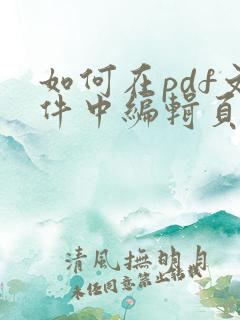 如何在pdf文
件中编辑页
清風撫明月
未经同意禁止转载